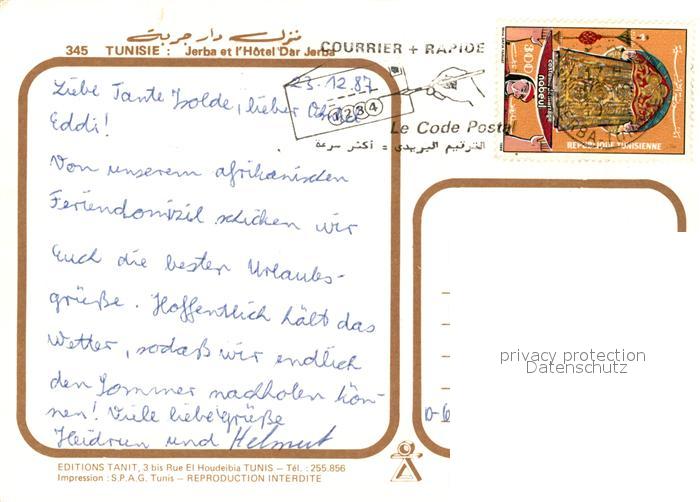 منزل دار جربة
345 TUNISIE : Jerba et l'Hôtel Dar Jerba
COURRIER + RAPIDE
23.12.87
1234
Le Code Postal
الترقيم البريدي = أكثر سرعة
300
nabeul
REPUBLIQUE TUNISIENNE
Liebe Tante Isolde, lieber Onkel
Eddi!
Von unserem afrikanischen
Feriendomizil schicken wir
Euch die besten Urlaubs-
grüße. Hoffentlich hält das
Wetter, sodaß wir endlich
den Sommer nachholen kön-
nen! Viele liebe Grüße
Heidrun und Helmut
privacy protection
Datenschutz
EDITIONS TANIT, 3 bis Rue El Houdeibia TUNIS - Tél. : 255.856
Impression : S.P.A.G. Tunis - REPRODUCTION INTERDITE